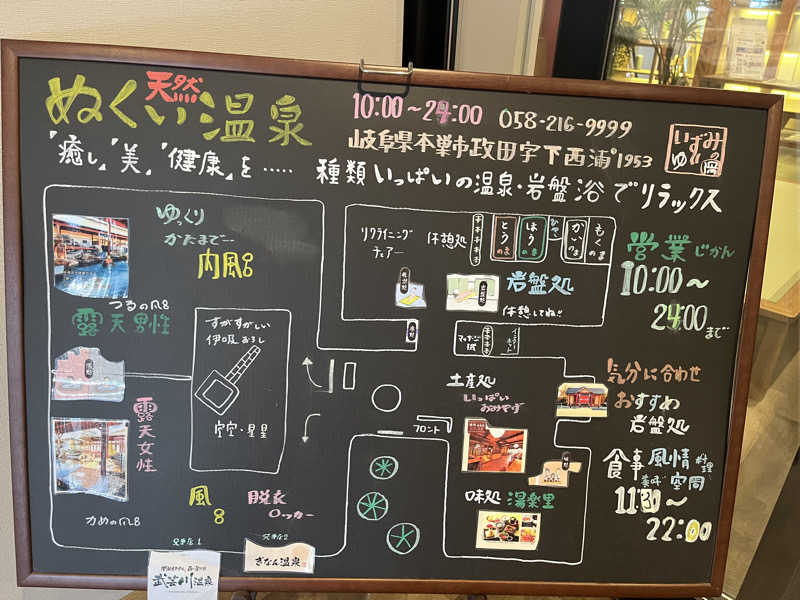 天然
ぬくい温泉
10:00~24:00 058-216-9999
岐阜県本巣市政田字下西浦1953
いずみの
ゆ 岡
"癒し"美"健康"を……
種類いっぱいの温泉・岩盤浴でリラックス
ゆっくり
かたまで…
内風呂
つるの風呂
露天男性
すがすがしい
伊吸おろし
空空・星星
露
天
女
性
かめの風呂
風
呂
脱衣
ロッカー
リクライニング
チェアー
休憩処
とうのま
ほうのま
かいのま
もくのま
岩盤処
休憩してね!!
営業じかん
10:00~
24:00まで
マッサージ
土産処
いっぱい
おみやげ
フロント
味処 湯楽里
気分に合わせ
おすすめ
岩盤処
食事 風情 料理
美味 空間
11:30~
22:00
兄弟店1
兄弟店2
武芸川温泉
ぎなん温泉